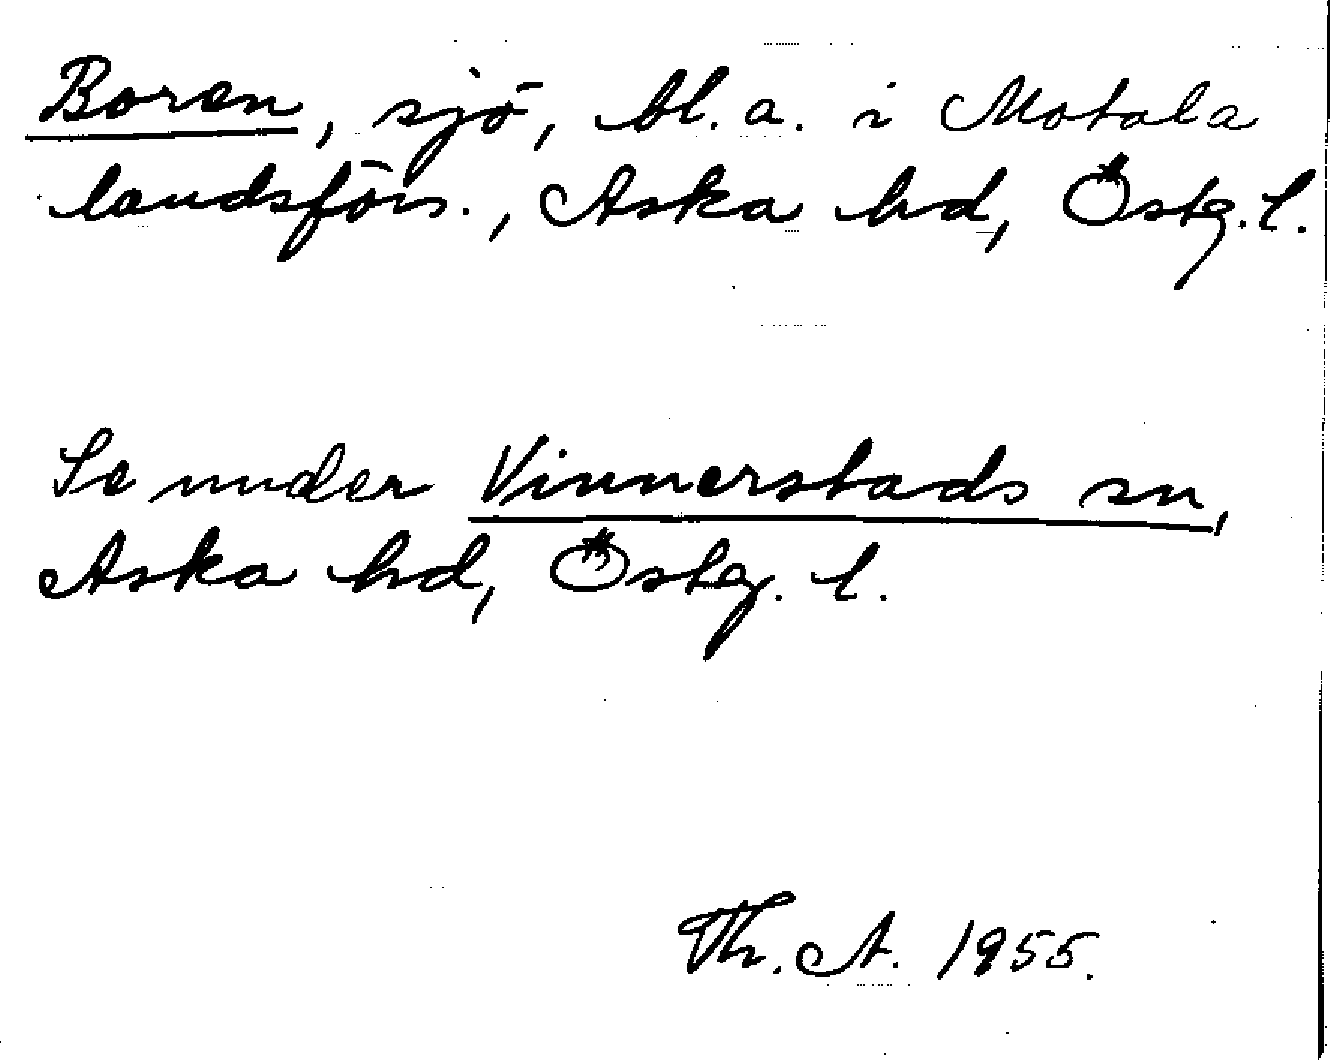 Boren, sjö, bl. a. i Motala
landsförs., Aska hd, Östg. l.
Se under Vinnerstads sn,
Aska hd, Östg. l.
Th. A. 1955.